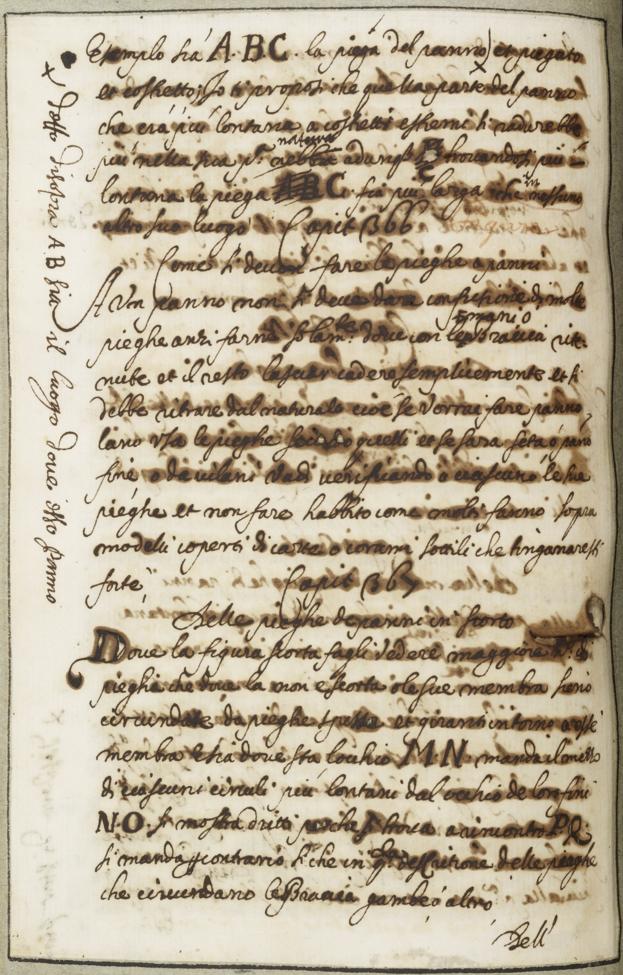 Esemplo sia A.B.C. la piega del panno et piegato
et costretto; Io ti proposi che quella parte del panno
che era più lontana a costretti estremi si ridurebbe
più nella sua p.ª natura adunq. B trovandosi più
lontana la piega ABC fia più larga che in nessuno
altro suo luogo Capit 366
Come si devon fare le pieghe a panni
A Un panno non si deve dare confusione di molte
pieghe anzi farne solam.te dove con le mani o braccia rite-
nute et il resto lasciar cadere semplicemente et si
debbe ritrare dal naturale cioè se vorrai fare panno
lano usa le pieghe secondo quelli et se sara seta o pano
fine o da vilani vadi verificando a ciascuno le sue
pieghe et non fare habbito come molti fanno sopra
modelli coperti di carte o corami sottili che t'inganaresti
forte Capit 367
Delle pieghe de panni in scorto
Dove la figura scorta fagli vedere maggiore n.º di
pieghi che dove la non è scorta o le sue membra sieno
circundate da pieghe spesse et giranti intorno a esse
membra E sia dove sta l'occhio M N manda il mezzo
di ciascuni circuli più lontani dal occhio de loro fini
N O. li mostra dritti perche si trova a rincontro P R
li manda p contrario si che in q.ta descritione delle pieghe
che circundano le Braccia gambe o altro
Dell'
x dallo disopra A B fia il luogo dove esso panno